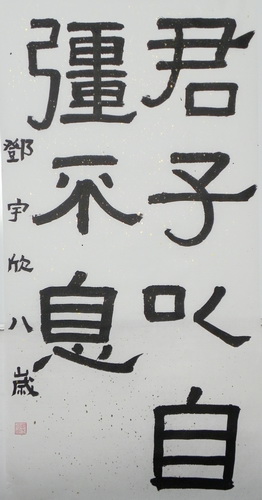 君子以自
彊不息
鄧宇欣八歲